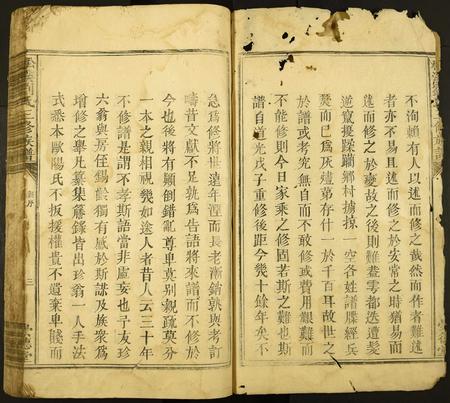 不洵賴有人以述而修之哉然而作者難述
者亦不易且述而修之於安常之時猶易而
述而修之於變故之後則難蓋零都迭遭髮
逆竄擾蹂躪鄉村擄掠一空各姓譜牒經兵
燹而已為灰燼弟存什一於千百耳故世之
於譜或考究無自而不敢修或費用艱難而
不能修則今日家乘之修固若斯之難也斯
譜自道光戊子重修後距今幾十餘年矣不
急為修將世遠年湮而長老漸銷孰與考訂
疇昔文獻不足孰為告語將來譜而不修於
今也後將有顛倒錯亂尊卑莫別親疏莫分
一本之親相視幾如途人者昔人云三十年
不修譜是謂不孝斯語當非虛妄也予友珍
六翁與房侄錫齡獨有感於斯謀及族眾為
增修之舉凡纂集簿錄皆出珍翁一人手法
式悉本歐陽氏不扳援權貴不遺棄卑賤而
劉氏三修族譜
三